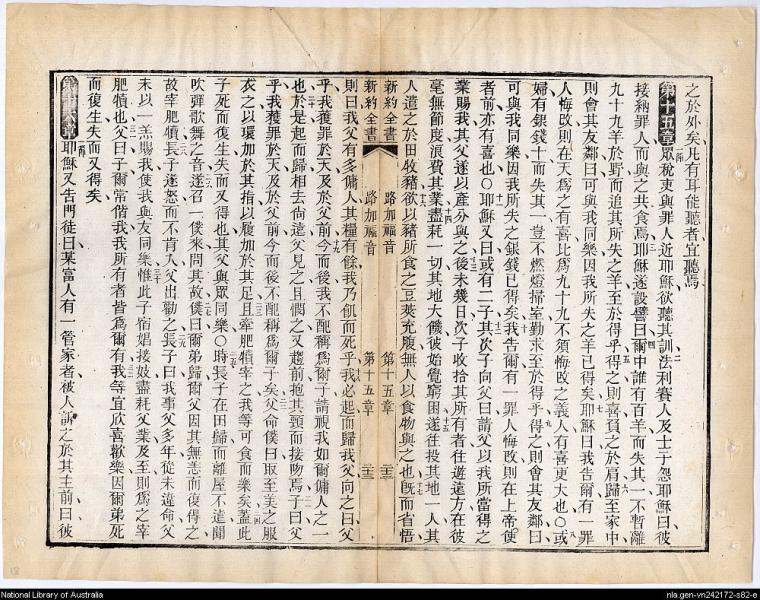 之於外矣凡有耳能聽者宜聽焉
第十五章 眾稅吏與罪人近耶穌欲聽其訓法利賽人及士子怨耶穌曰彼
接納罪人而與之共食焉耶穌遂設譬曰爾中誰有百羊而失其一不暫離
九十九羊於野而追其所失之羊至於得乎得之則喜負之於肩歸至家中
則會其友鄰曰可與我同樂因我所失之羊已得矣耶穌曰我告爾有一罪
人悔改則在天為之有喜比為九十九不須悔改之義人有喜更大也○或
婦有銀錢十而失其一豈不燃燈掃室勤求至於得乎得之則會其友鄰曰
可與我同樂因我所失之銀錢已得矣我告爾有一罪人悔改則在上帝使
者前亦有喜也○耶穌又曰或有二子其次子向父曰請父以我所當得之
業賜我其父遂以產分與之後未幾日次子收拾其所有者往遊遠方在彼
毫無節度浪費其業盡耗一切其地大饑彼始覺窮困遂往投其地一人其
人遣之於田牧豬欲以豬所食之豆莢充腹無人以食物與之也既而省悟
新約全書 路加福音 第十五章 三十二
新約全書 路加福音 第十五章
則曰我父有多傭人其糧有餘我乃飢而死乎我必起而歸我父向之曰父
乎我獲罪於天及於父前今而後我不配稱為爾子請視我如爾傭人之一
也於是起而歸相去尚遠父見之且憫之又趨前抱其頸而接吻焉子曰父
乎我獲罪於天及於父前今而後不配稱為爾子矣父命僕曰取至美之服
衣之以環加於其指以履加於其足且牽肥犢宰之我等可食而樂矣蓋此
子死而復生失而又得也其父與眾同樂○時長子在田歸而離屋不遠聞
吹彈歌舞之音遂召一僕來問其故僕曰爾弟歸爾父因其無恙而復得之
故宰肥犢長子遂怒而不肯入父出勸之長子曰我事父多年從未違命父
未以一羔賜我使我與友同樂惟此子宿娼接妓盡耗父業及至則為之宰
肥犢也父曰子爾常偕我我所有者皆為爾有我等宜欣喜歡樂因爾弟死
而復生失而又得矣
第十六章 耶穌又告門徒曰某富人有一管家者被人訴之於其主前曰彼
National Library of Australia
nla.gen-vn242172-s82-e